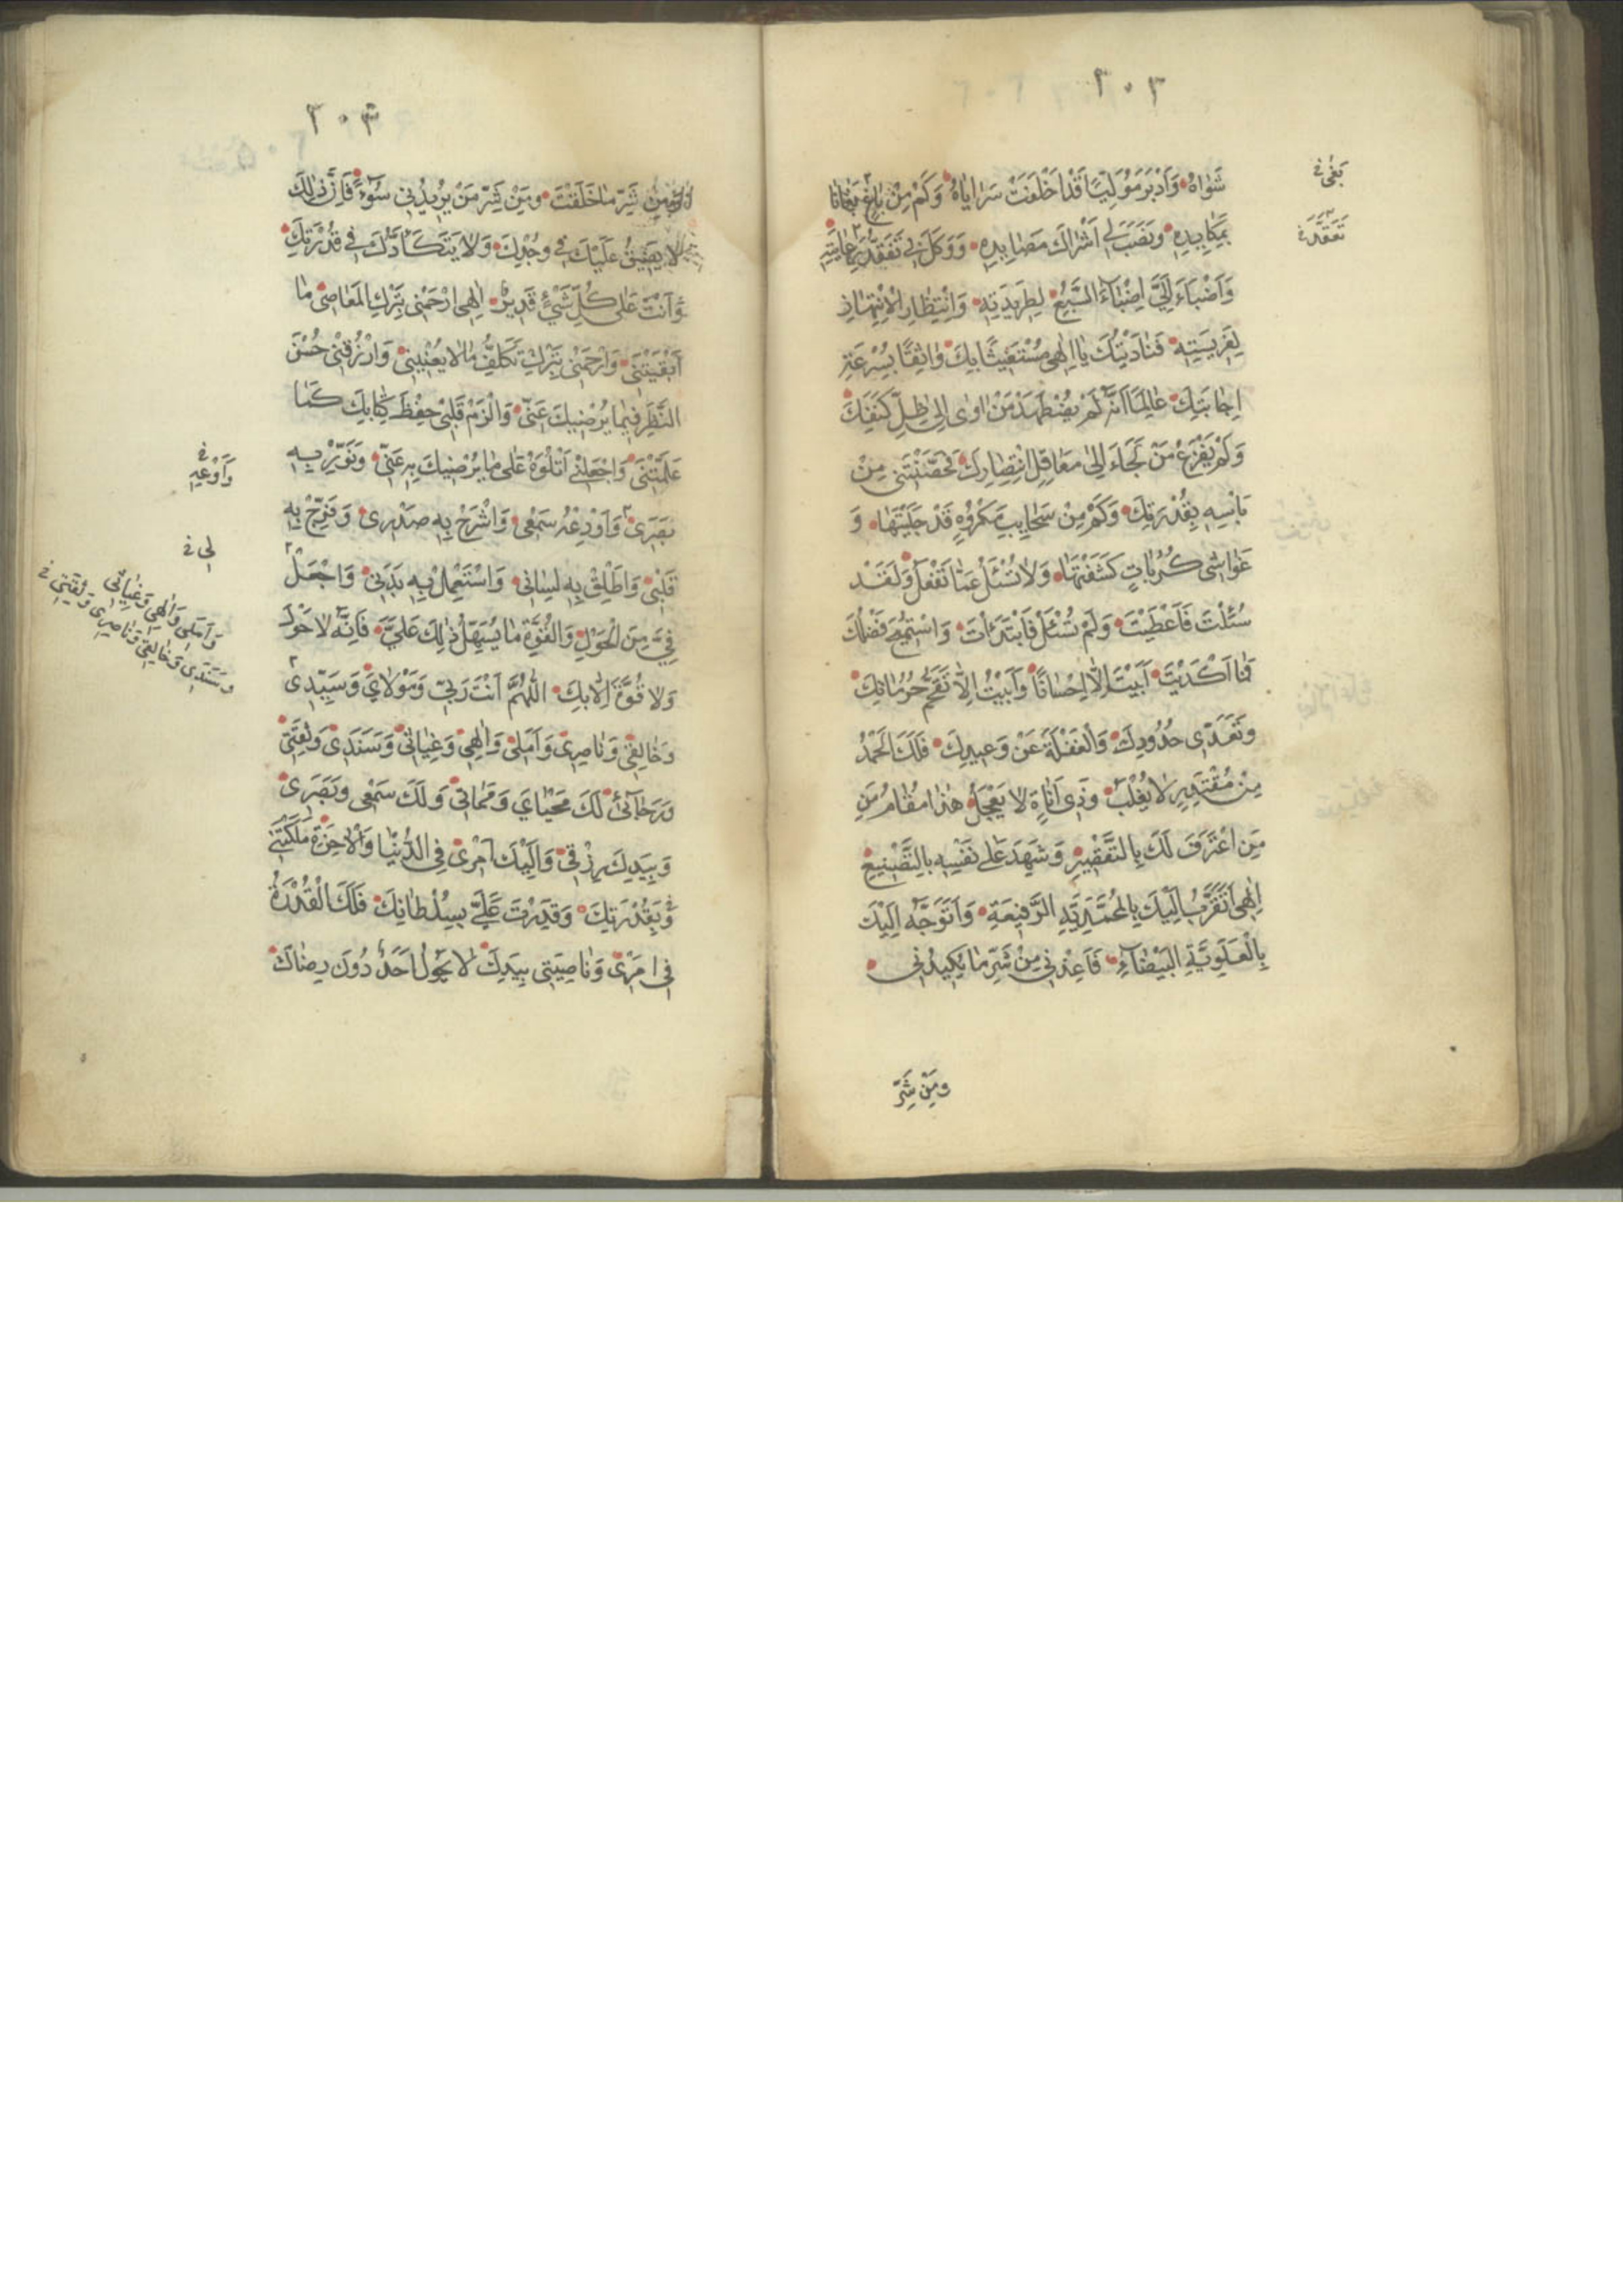 ٣٠٢
شَوَاهُ وَأَدْبَرَ مُوَلِّيًا قَدْ اَخْلَفَتْ سَرَايَاهُ وَكَمْ مِنْ بَاغٍ بَغَانِى
بِمَكَايِدِهِ وَنَصَبَ لِى اَشْرَاكَ مَصَايِدِهِ وَوَكَّلَ بِى تَفَقُّدَ رِعَايَتِهِ
وَاَضْبَاَ اِلَىَّ اِضْبَاءَ السَّبُعِ لِطَرِيدَتِهِ وَانْتِظَارِ الْاِنْتِهَازِ
لِفَرِيسَتِهِ فَنَادَيْتُكَ يَا اِلٰهِى مُسْتَغِيثًا بِكَ وَاثِقًا بِسُرْعَةِ
اِجَابَتِكَ عَالِمًا اَنَّهُ لَمْ يُضْطَهَدْ مَنْ اٰوٰى اِلٰى ظِلِّ كَنَفِكَ
وَلَمْ يَفْزَعْ مَنْ لَجَاَءَ اِلٰى مَعَاقِلِ انْتِصَارِكَ فَحَصَّنْتَنِى مِنْ
بَاْسِهِ بِقُدْرَتِكَ وَكَمْ مِنْ سَحَايِبِ مَكْرُوهٍ قَدْ جَلَّيْتَهَا وَ
غَوَاشِى كُرُبَاتٍ كَشَفْتَهَا وَلَا تُسْئَلُ عَمَّا تَفْعَلُ وَلَقَدْ
سُئِلْتَ فَاَعْطَيْتَ وَلَمْ تُسْئَلْ فَابْتَدَاْتَ وَاسْتُمِيحَ فَضْلُكَ
فَمَا اَكْدَيْتَ اَبَيْتَ اِلَّا اِحْسَانًا وَاَبَيْتُ اِلَّا تَقَحُّمَ حُرُمَاتِكَ
وَتَعَدِّى حُدُودِكَ وَالْغَفْلَةَ عَنْ وَعِيدِكَ فَلَكَ الْحَمْدُ
مِنْ مُقْتَدِرٍ لَا يُغْلَبُ وَذِى اَنَاةٍ لَا يَعْجَلُ هٰذَا مَقَامُ مَنِ
مَنِ اعْتَرَفَ لَكَ بِالتَّقْصِيرِ وَشَهِدَ عَلٰى نَفْسِهِ بِالتَّضْيِيعِ
اِلٰهِى اَتَقَرَّبُ اِلَيْكَ بِالْمُحَمَّدِيَّةِ الرَّفِيعَةِ وَاَتَوَجَّهُ اِلَيْكَ
بِالْعَلَوِيَّةِ الْبَيْضَآءِ فَاَعِذْنِى مِنْ شَرِّ مَا يَكِيدُنِى
وَمِنْ شَرِّ
بَغٰى
تَفَقُّدَ
٣٠٣
وَمِنْ شَرِّ مَا خَلَقْتَ وَمِنْ شَرِّ مَنْ يُرِيدُنِى سُوٓءً فَاِنَّ ذٰلِكَ
لَا يَضِيقُ عَلَيْكَ فِى وُجْدِكَ وَلَا يَتَكَاَّدُكَ فِى قُدْرَتِكَ
وَاَنْتَ عَلٰى كُلِّ شَىْءٍ قَدِيرٌ اِلٰهِى ارْحَمْنِى بِتَرْكِ الْمَعَاصِى مَا
اَبْقَيْتَنِى وَارْحَمْنِى بِتَرْكِ تَكَلُّفِ مَا لَا يَعْنِينِى وَارْزُقْنِى حُسْنَ
النَّظَرِ فِيمَا يُرْضِيكَ عَنِّى وَالْزِمْ قَلْبِى حِفْظَ كِتَابِكَ كَمَا
عَلَّمْتَنِى وَاجْعَلْنِى اَتْلُوهُ عَلٰى مَا يُرْضِيكَ بِهِ عَنِّى وَنَوِّرْ بِهِ
بَصَرِى وَاَوْدِعْهُ سَمْعِى وَاشْرَحْ بِهِ صَدْرِى وَفَرِّجْ بِهِ
قَلْبِى وَاَطْلِقْ بِهِ لِسَانِى وَاسْتَعْمِلْ بِهِ بَدَنِى وَاجْعَلْ
فِىَّ مِنَ الْحَوْلِ وَالْقُوَّةِ مَا يُسَهِّلُ ذٰلِكَ عَلَىَّ فَاِنَّهُ لَا حَوْلَ
وَلَا قُوَّةَ اِلَّا بِكَ اللّٰهُمَّ اَنْتَ رَبِّى وَمَوْلَاىَ وَسَيِّدِى
وَخَالِقِى وَنَاصِرِى وَاَمَلِى وَاِلٰهِى وَغِيَاثِى وَسَنَدِى وَثِقَتِى
وَرَجَآئِى لَكَ مَحْيَاىَ وَمَمَاتِى وَلَكَ سَمْعِى وَبَصَرِى
وَبِيَدِكَ رِزْقِى وَاِلَيْكَ اَمْرِى فِى الدُّنْيَا وَالْاٰخِرَةِ مَلَكْتَنِى
بِقُدْرَتِكَ وَقَدَرْتَ عَلَىَّ بِسُلْطَانِكَ فَلَكَ الْقُدْرَةُ
فِى اَمْرِى وَنَاصِيَتِى بِيَدِكَ لَا يَحُولُ اَحَدٌ دُونَ رِضَاكَ
وَاَوْعِهِ
لِى
وَاَمَلِى وَاِلٰهِى وَغِيَاثِى
وَسَنَدِى وَخَالِقِى وَنَاصِرِى وَثِقَتِى